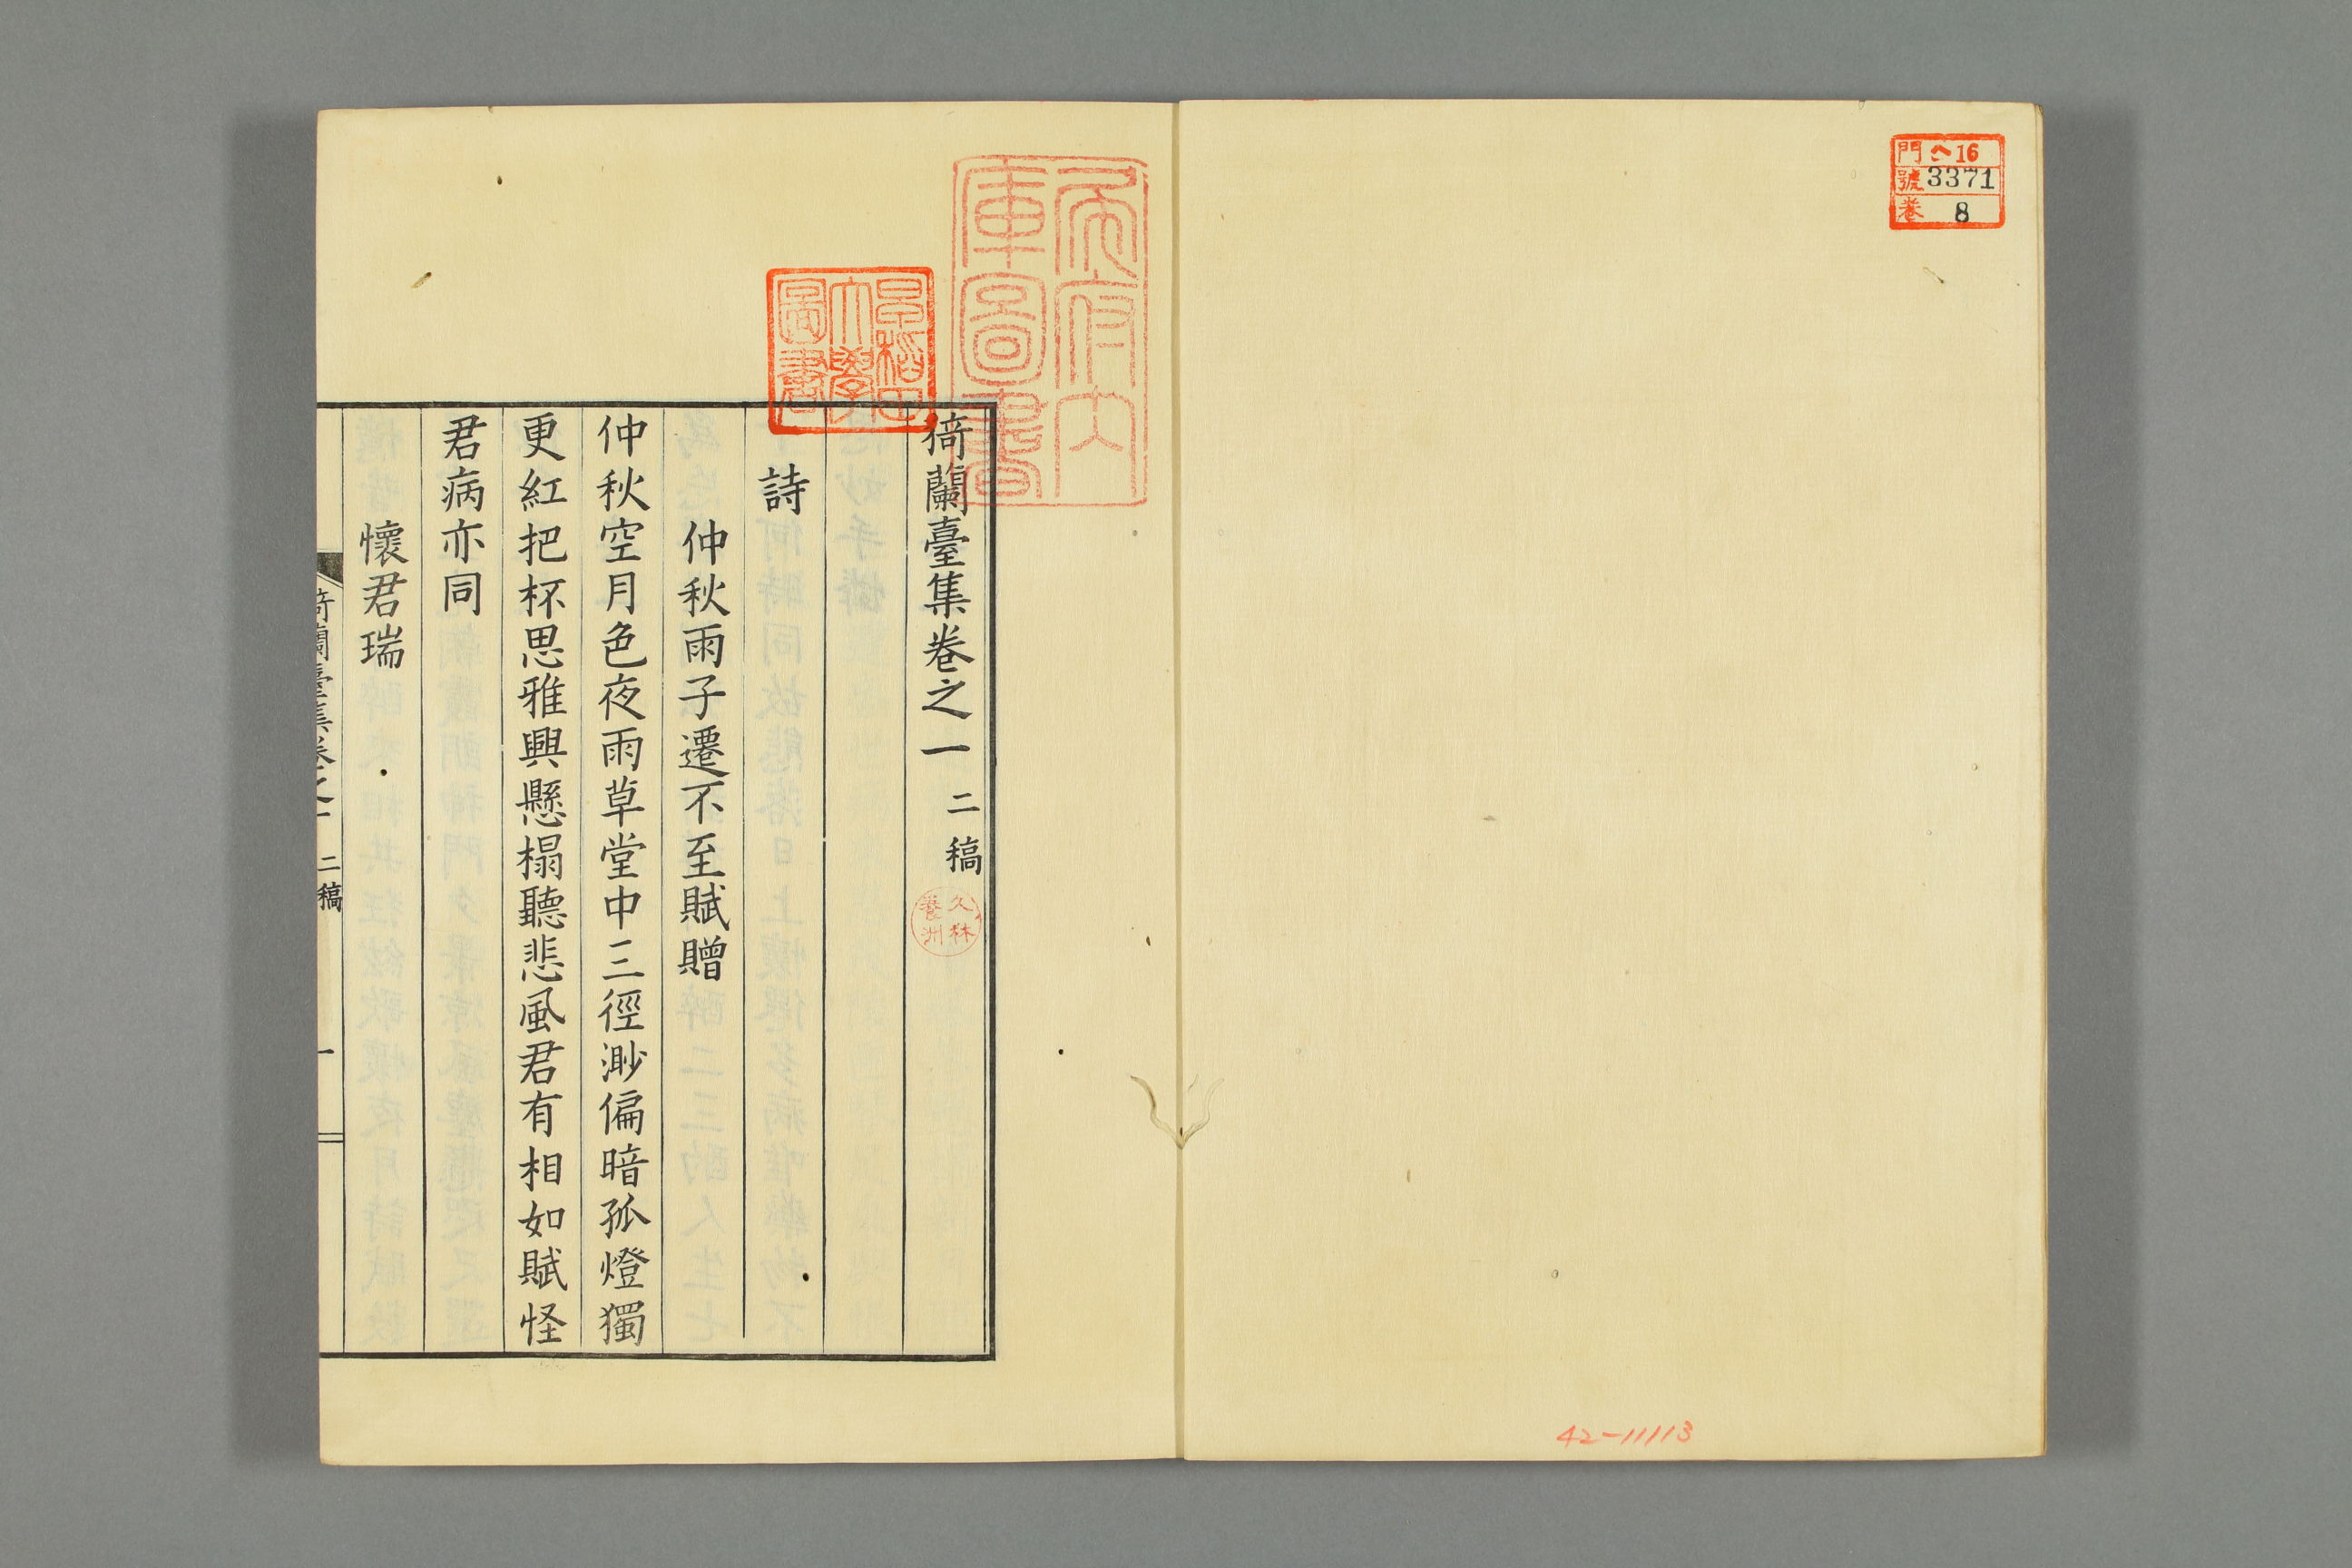 門 ヘ16
號 3371
巻 8
猗蘭臺集卷之一 二稿
詩
仲秋雨子遷不至賦贈
仲秋空月色夜雨草堂中三徑渺偏暗孤燈獨
更紅把杯思雅興懸榻聽悲風君有相如賦怪
君病亦同
懷君瑞
猗蘭臺集卷之一 二稿 一
早稻田大學圖書
42-11113